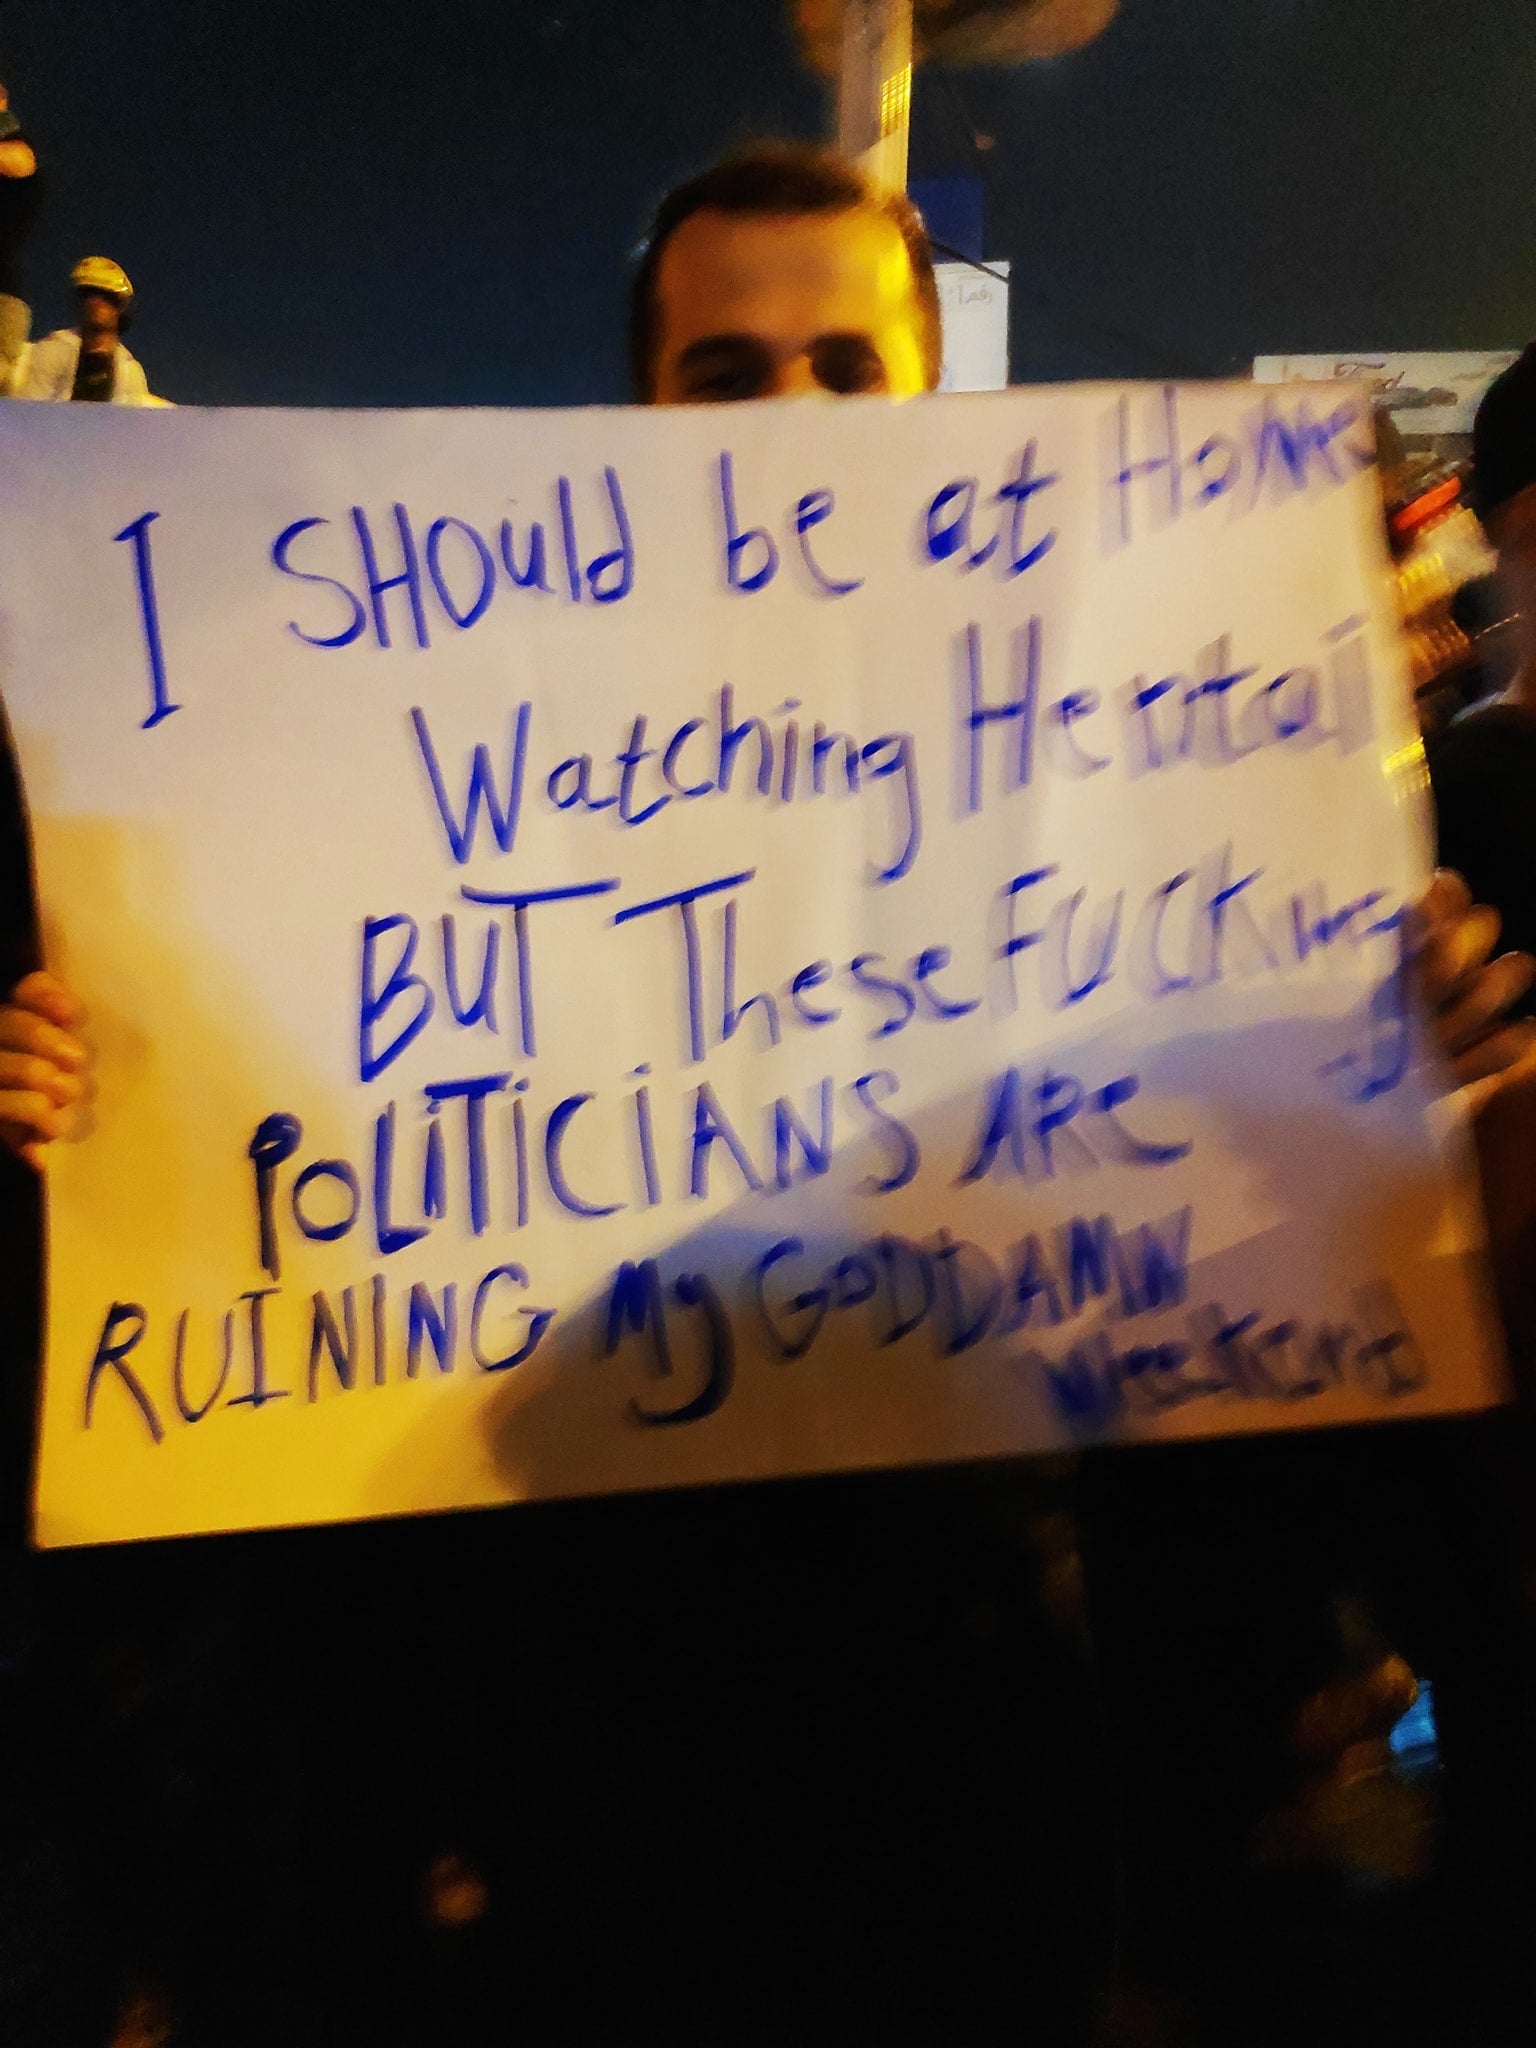 I SHOuld be at Home
Watching Hentai
BUT These FUCKing
POLiTiCiANS ARe
RUINING My GODDAMN
Weekend